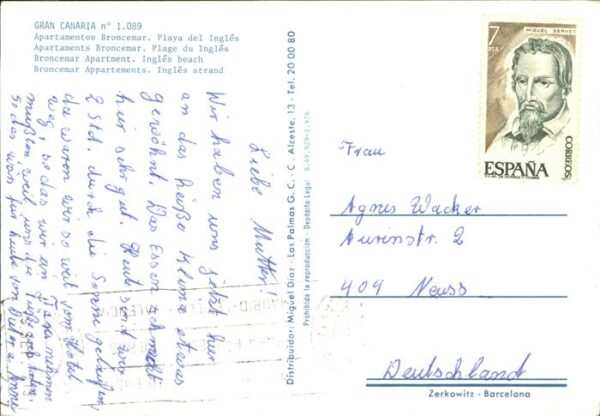 GRAN CANARIA n° 1.089
Apartamentos Broncemar. Playa del Inglés
Apartaments Broncemar. Plage du Inglés
Broncemar Apartment. Inglés beach
Broncemar Appartements. Inglés strand
Liebe Mutter!
Wir haben uns jetzt hier
an das heiße Klima etwas
gewöhnt. Das Essen schmeckt
hier sehr gut. Heut sind wir
2 Std. durch die Sonne gelaufen,
da waren wir so weit vom Hotel
weg, so das wir ein Taxi nehmen
mußten weil uns die Füße
so das wir für heute
Distribuidor: Miguel Diaz - Las Palmas G. C. - C. Alceste, 13 - Tel. 20 00 80
Prohibida la reproducción - Depósito Legal B. 49.929-1.976
MIGUEL SERVET
7
PTA
ESPAÑA
CORREOS
Frau
Agnes Wacker
Aurinstr. 2
404 Neuss
Deutschland
Zerkowitz - Barcelona